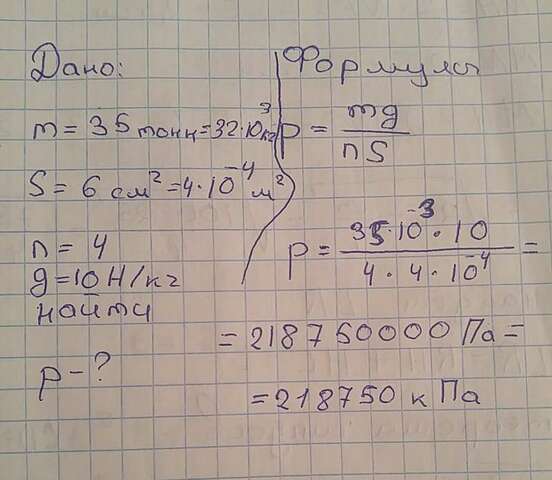 Дано:
m = 35 тонн = 32·10³ кг
S = 6 см² = 4·10⁻⁴ м²
n = 4
g = 10 Н/кг
найти
p - ?
Формулы
p = mg / nS
p = 35·10⁻³·10 / 4·4·10⁻⁴ =
= 218750000 Па =
= 218750 к Па